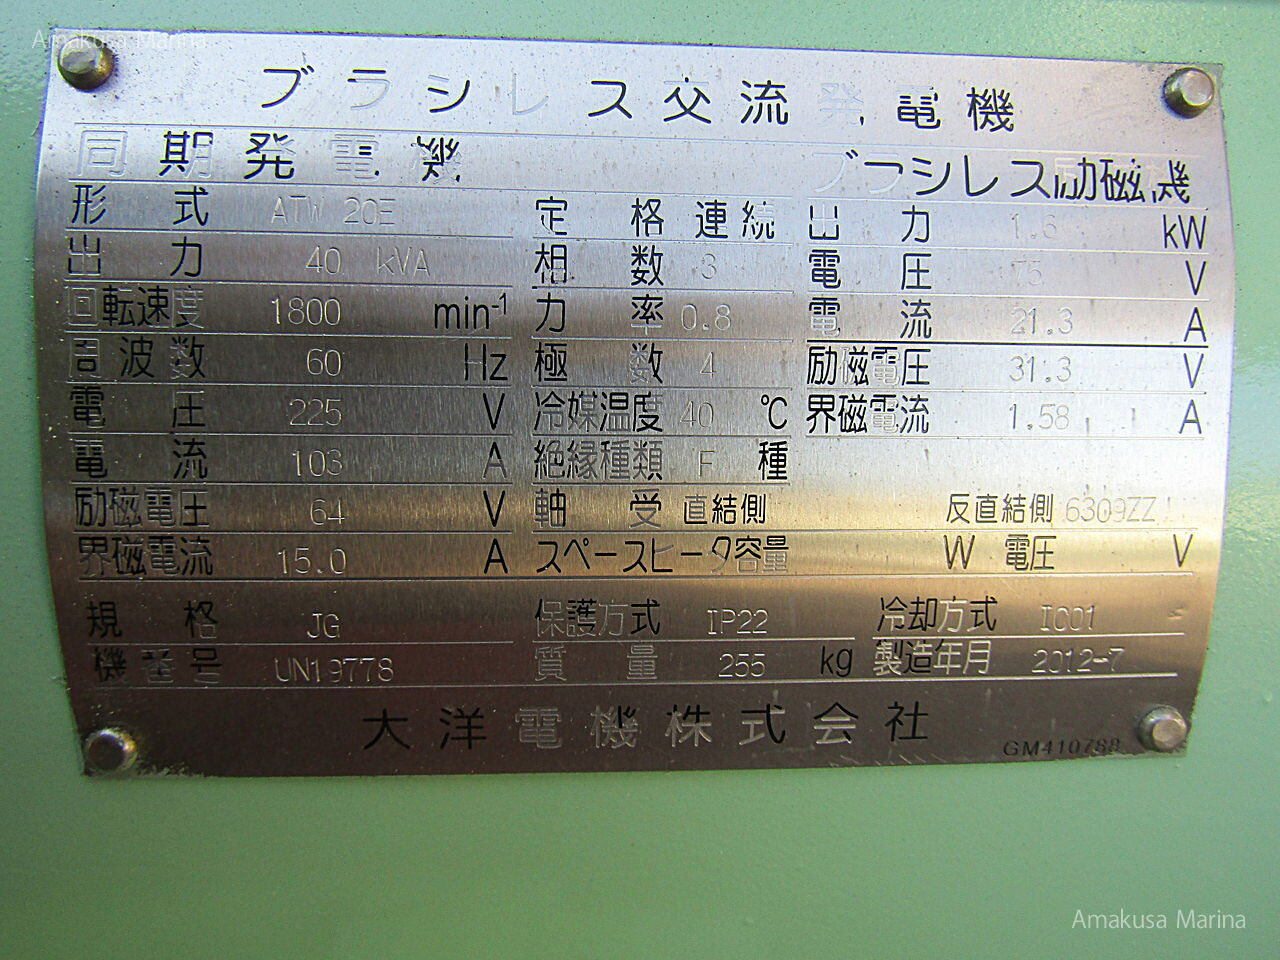 Amakusa Marina
ブラシレス交流発電機
同期発電機 ブラシレス励磁機
形式 ATW 20E 定格 連続 出力 1.6 kW
出力 40 kVA 相数 3 電圧 75 V
回転速度 1800 min-1 力率 0.8 電流 21.3 A
周波数 60 Hz 極数 4 励磁電圧 31.3 V
電圧 225 V 冷媒温度 40 ℃ 界磁電流 1.58 A
電流 103 A 絶縁種類 F 種
励磁電圧 64 V 軸受 直結側 反直結側 6309ZZ
界磁電流 15.0 A スペースヒータ容量 W 電圧 V
規格 JG 保護方式 IP22 冷却方式 IC01
機番号 UN19778 質量 255 kg 製造年月 2012-7
大洋電機株式会社
GM410788
Amakusa Marina